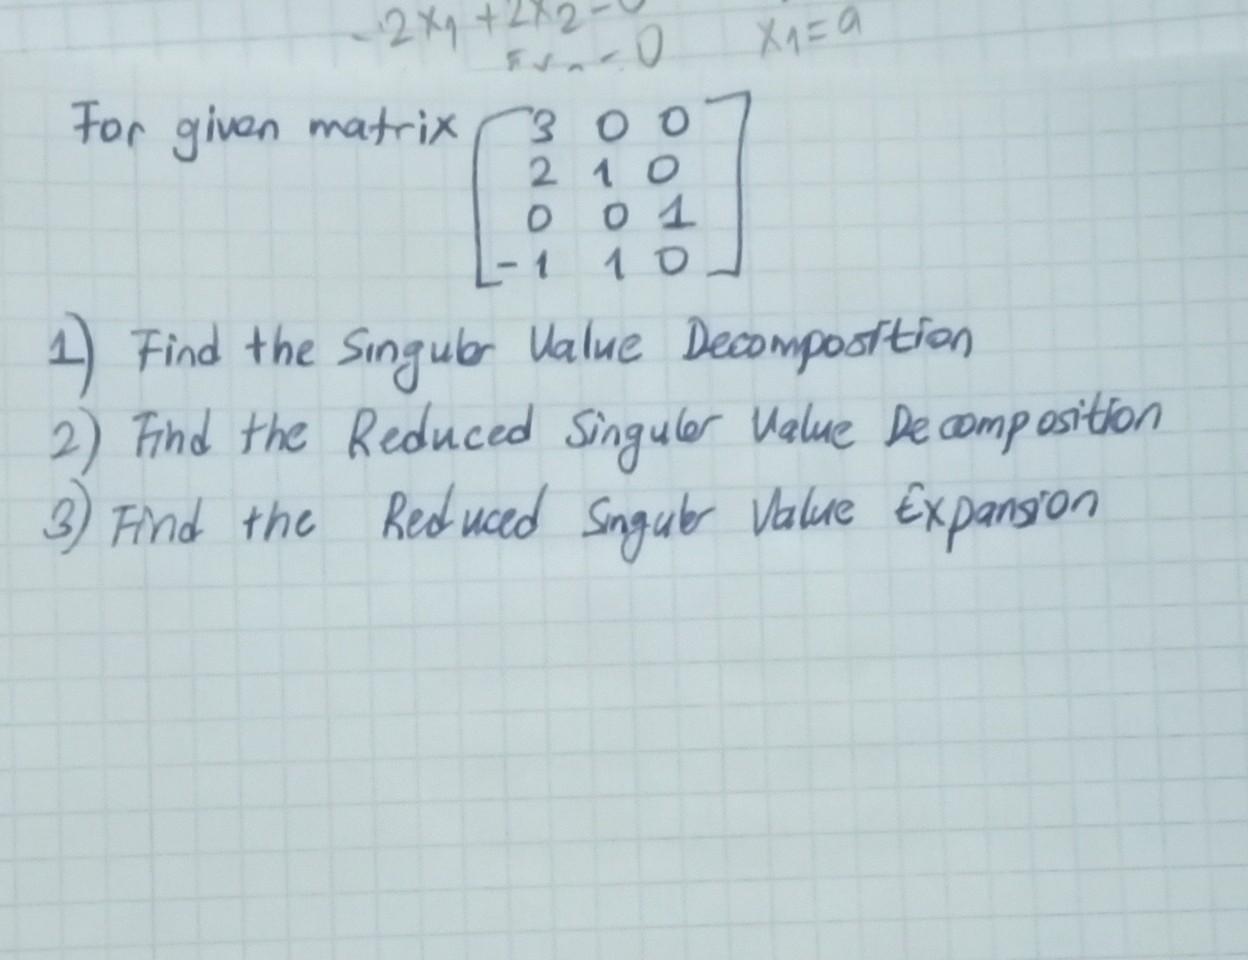 -2x1 + 2x2 = 0
= 0 x1 = a
For given matrix [ 3 0 0
2 1 0
0 0 1
-1 1 0 ]
1) Find the Singular Value Decomposition
2) Find the Reduced Singular Value Decomposition
3) Find the Reduced Singular Value Expansion